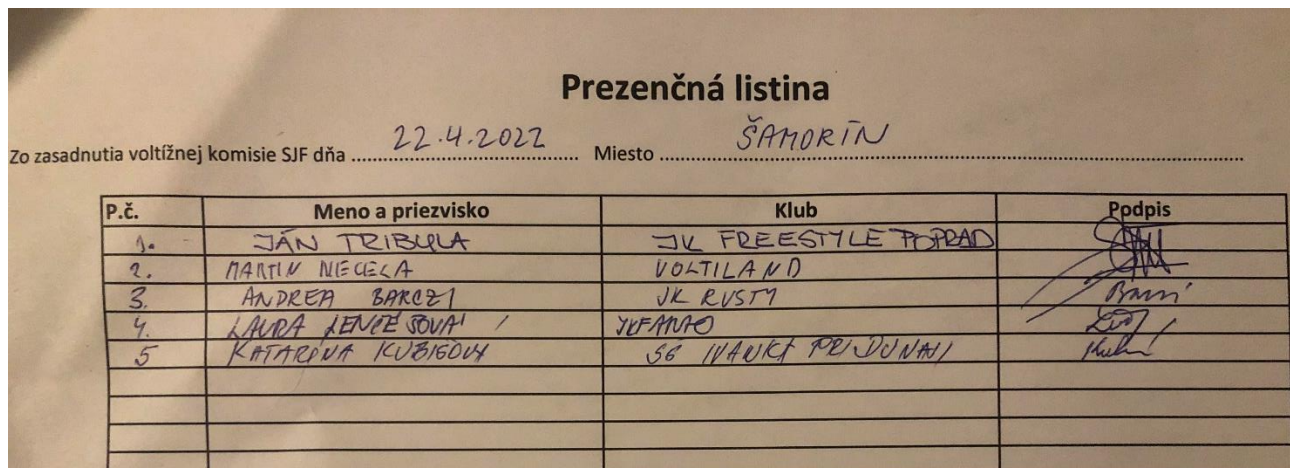 Prezenčná listina
Zo zasadnutia voltížnej komisie SJF dňa 22.4.2022 Miesto ŠAMORÍN
P.č. Meno a priezvisko Klub Podpis
1. JÁN TRIBULA JK FREESTYLE POPRAD
2. MARTIN VOLTILAND
3. ANDREA BARCZI JK RUSTY
4. LAURA
5 KATARÍNA IVANKA PRI DUNAJI